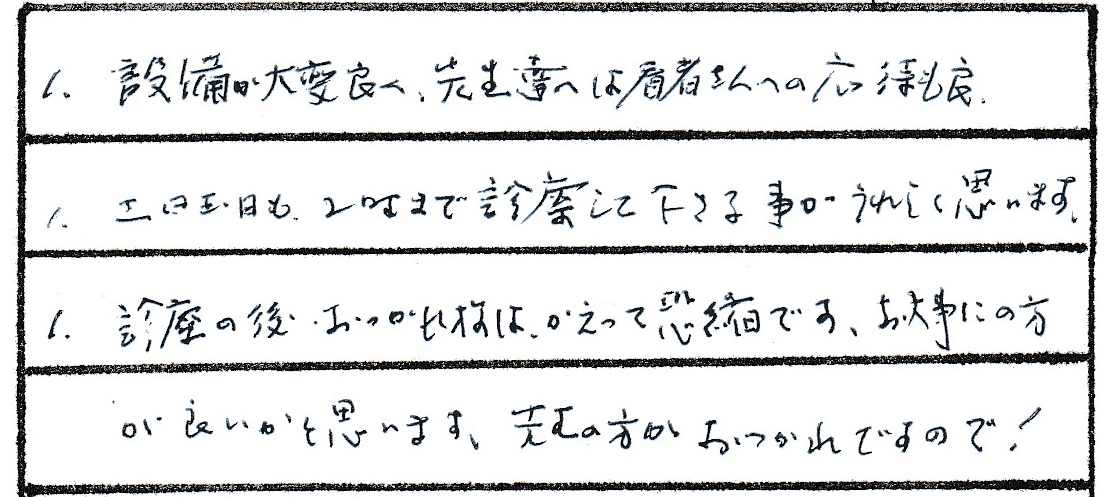 1. 設備が大変良く、先生達へは看者さんへの応待も良、
1. 土曜日も、2時まで診察して下さる事がうれしく思います。
1. 診座の後、おつかれ様は、かえって恐縮です、お大事にの方
が良いかと思います、先生の方がおつかれですので!